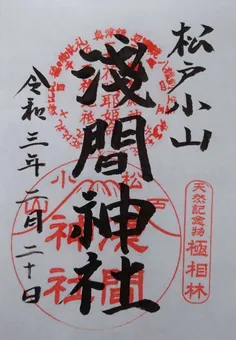 松戸小山
淺間神社
令和三年二月二十日
天然記念物
極相林
松戸
小山
浅間
神社